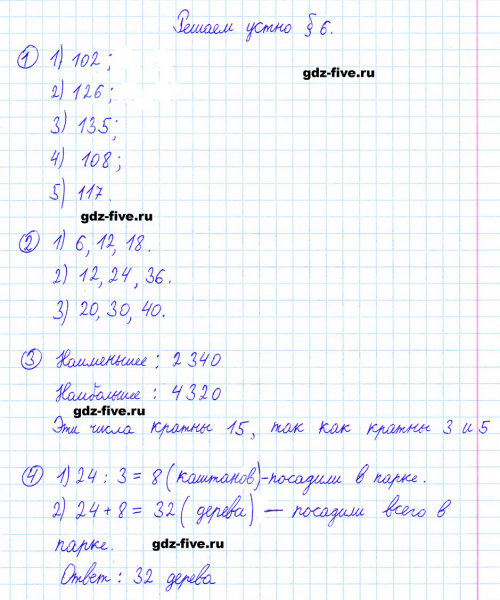 Решаем устно § 6.
① 1) 102;
gdz-five.ru
2) 126;
3) 135;
4) 108;
5) 117.
gdz-five.ru
② 1) 6, 12, 18.
2) 12, 24, 36.
3) 20, 30, 40.
③ Наименьшее: 2340
Наибольшее: 4320
gdz-five.ru
Эти числа кратны 15, так как кратны 3 и 5
④ 1) 24 : 3 = 8 (каштанов)-посадили в парке.
2) 24 + 8 = 32 (дерева) — посадили всего в
парке.
gdz-five.ru
Ответ: 32 дерева